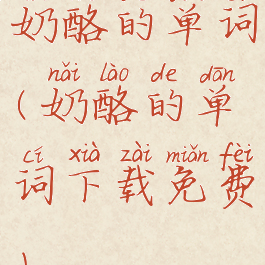 奶酪的单词
nǎi lào de dān
(奶酪的单
cí xià zài miǎn fèi
词下载免费
)